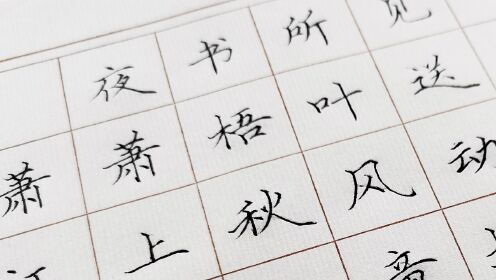 夜书所见
萧萧梧叶送
江上秋风动
音